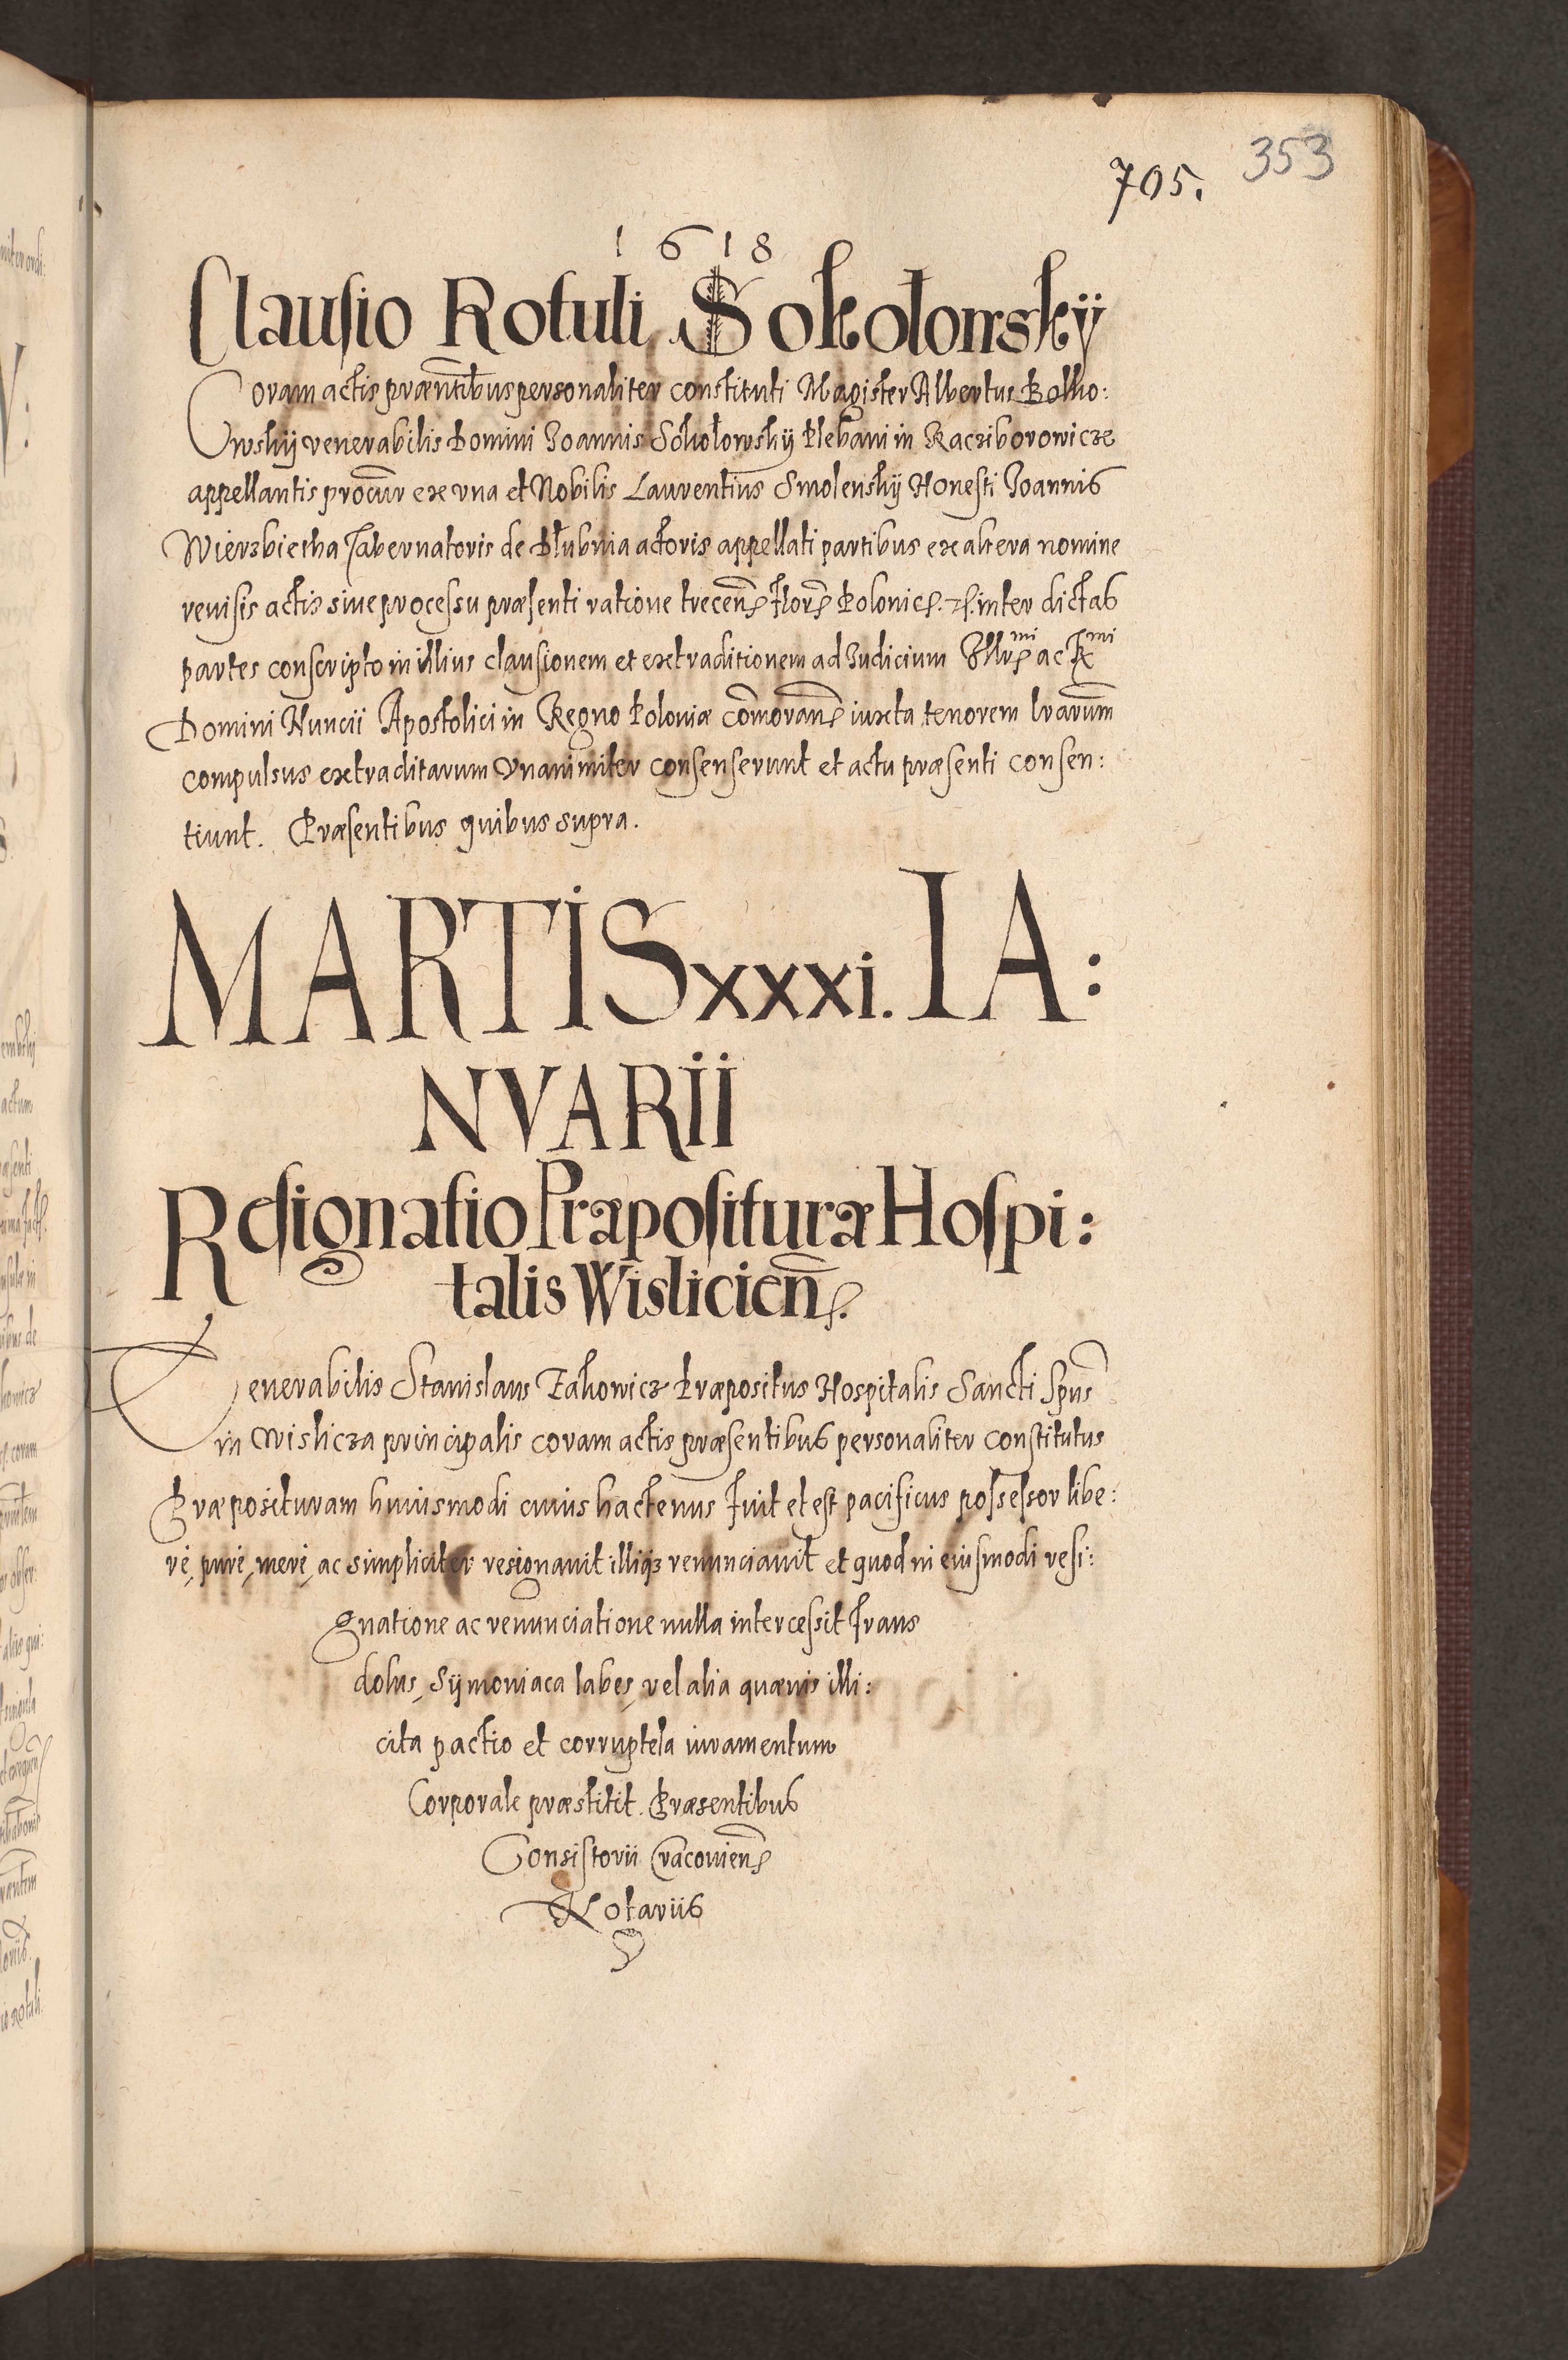 705. 353
1618
Clausio Rotuli Sokołowskÿ
Coram actis præntibus personaliter constituti Magister Albertus Bolko:
wskÿ venerabilis Domini Joannis Sokołowskÿ Plebani in Racziborowicze
appellantis procur ex una et Nobilis Laurentius Smolenskÿ Honesti Joannis
Wierzbietha Tabernatoris de Dłubnia actoris appellati partibus ex altera nomine
reuisis actis siue processu præsenti ratione trecen. flor. Polonic. inter dictas
partes conscripto in illius clausionem et extraditionem ad Judicium Illr. mi ac R mi
Domini Nuncii Apostolici in Regno Poloniæ comoran. iuxta tenorem lrarum
compulsus extraditarum Vnanimiter consenserunt et actu præsenti consen:
tiunt. Præsentibus quibus supra.
MARTIS xxxi. IA:
NVARII
Resignatio Præpositura Hospi:
talis Wislicien.
Venerabilis Stanislaus Zakowicz Præpositus Hospitalis Sancti Spus
in Wislicza principalis coram actis præsentibus personaliter constitutus
Præposituram huiusmodi cuius hactenus fuit et est pacificus possessor libe:
rè, purè, merè, ac simpliciter resignauit illiq3 renunciauit et quod in eiusmodi resi:
gnatione ac renunciatione nulla intercessit fraus
dolus, Sÿmoniaca labes, vel alia quævis illi:
cita pactio et corruptela iuramentum
Corporale præstitit. Præsentibus
Consistorii Cracouien.
Notariis